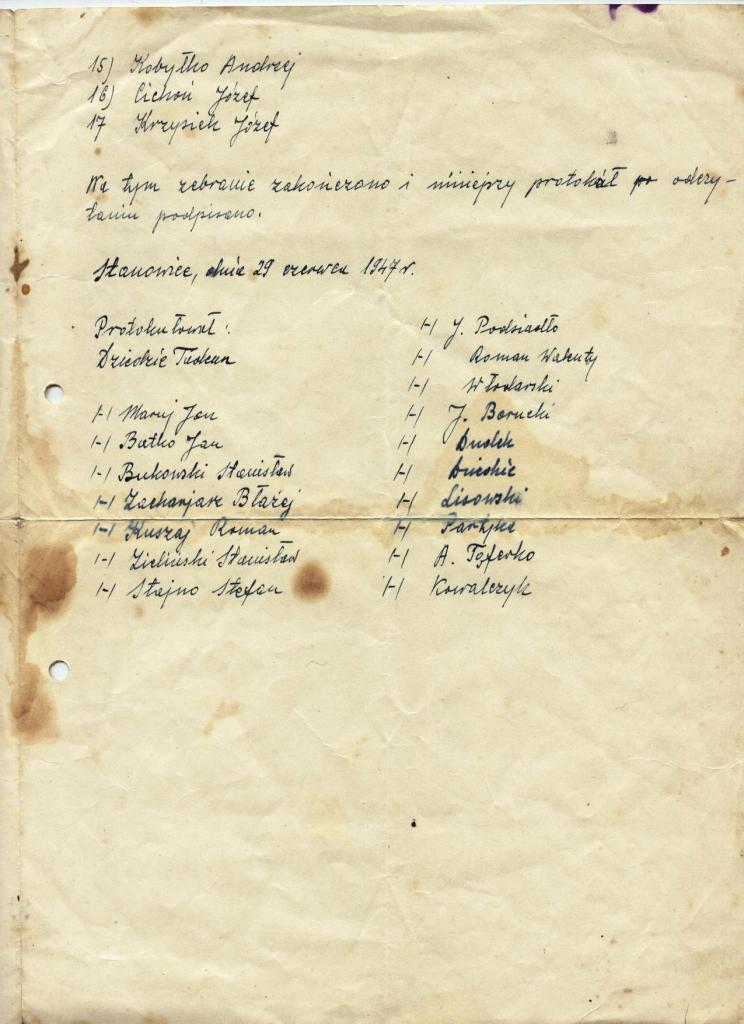 15) Kobyłko Andrzej
16) Cichoń Józef
17 Krzysiek Józef
Na tym zebranie zakończono i niniejszy protokół po odczy-
taniu podpisano.
Stanowice, dnia 29 czerwca 1947 r.
Protokułował:
Dziedzic
/-/ J. Podsiadło
/-/ Roman Walenty
/-/ Włodarski
/-/ Jan
/-/ J. Borucki
/-/ Batko Jan
/-/ Dudek
/-/ Bukowski Stanisław
/-/ Dziedzic
/-/ Zacharjasz Błażej
/-/ Lisowski
/-/ Kuszaj Roman
/-/ Partyka
/-/ Zieliński Stanisław
/-/ A.
/-/ Stajno Stefan
/-/ Kowalczyk